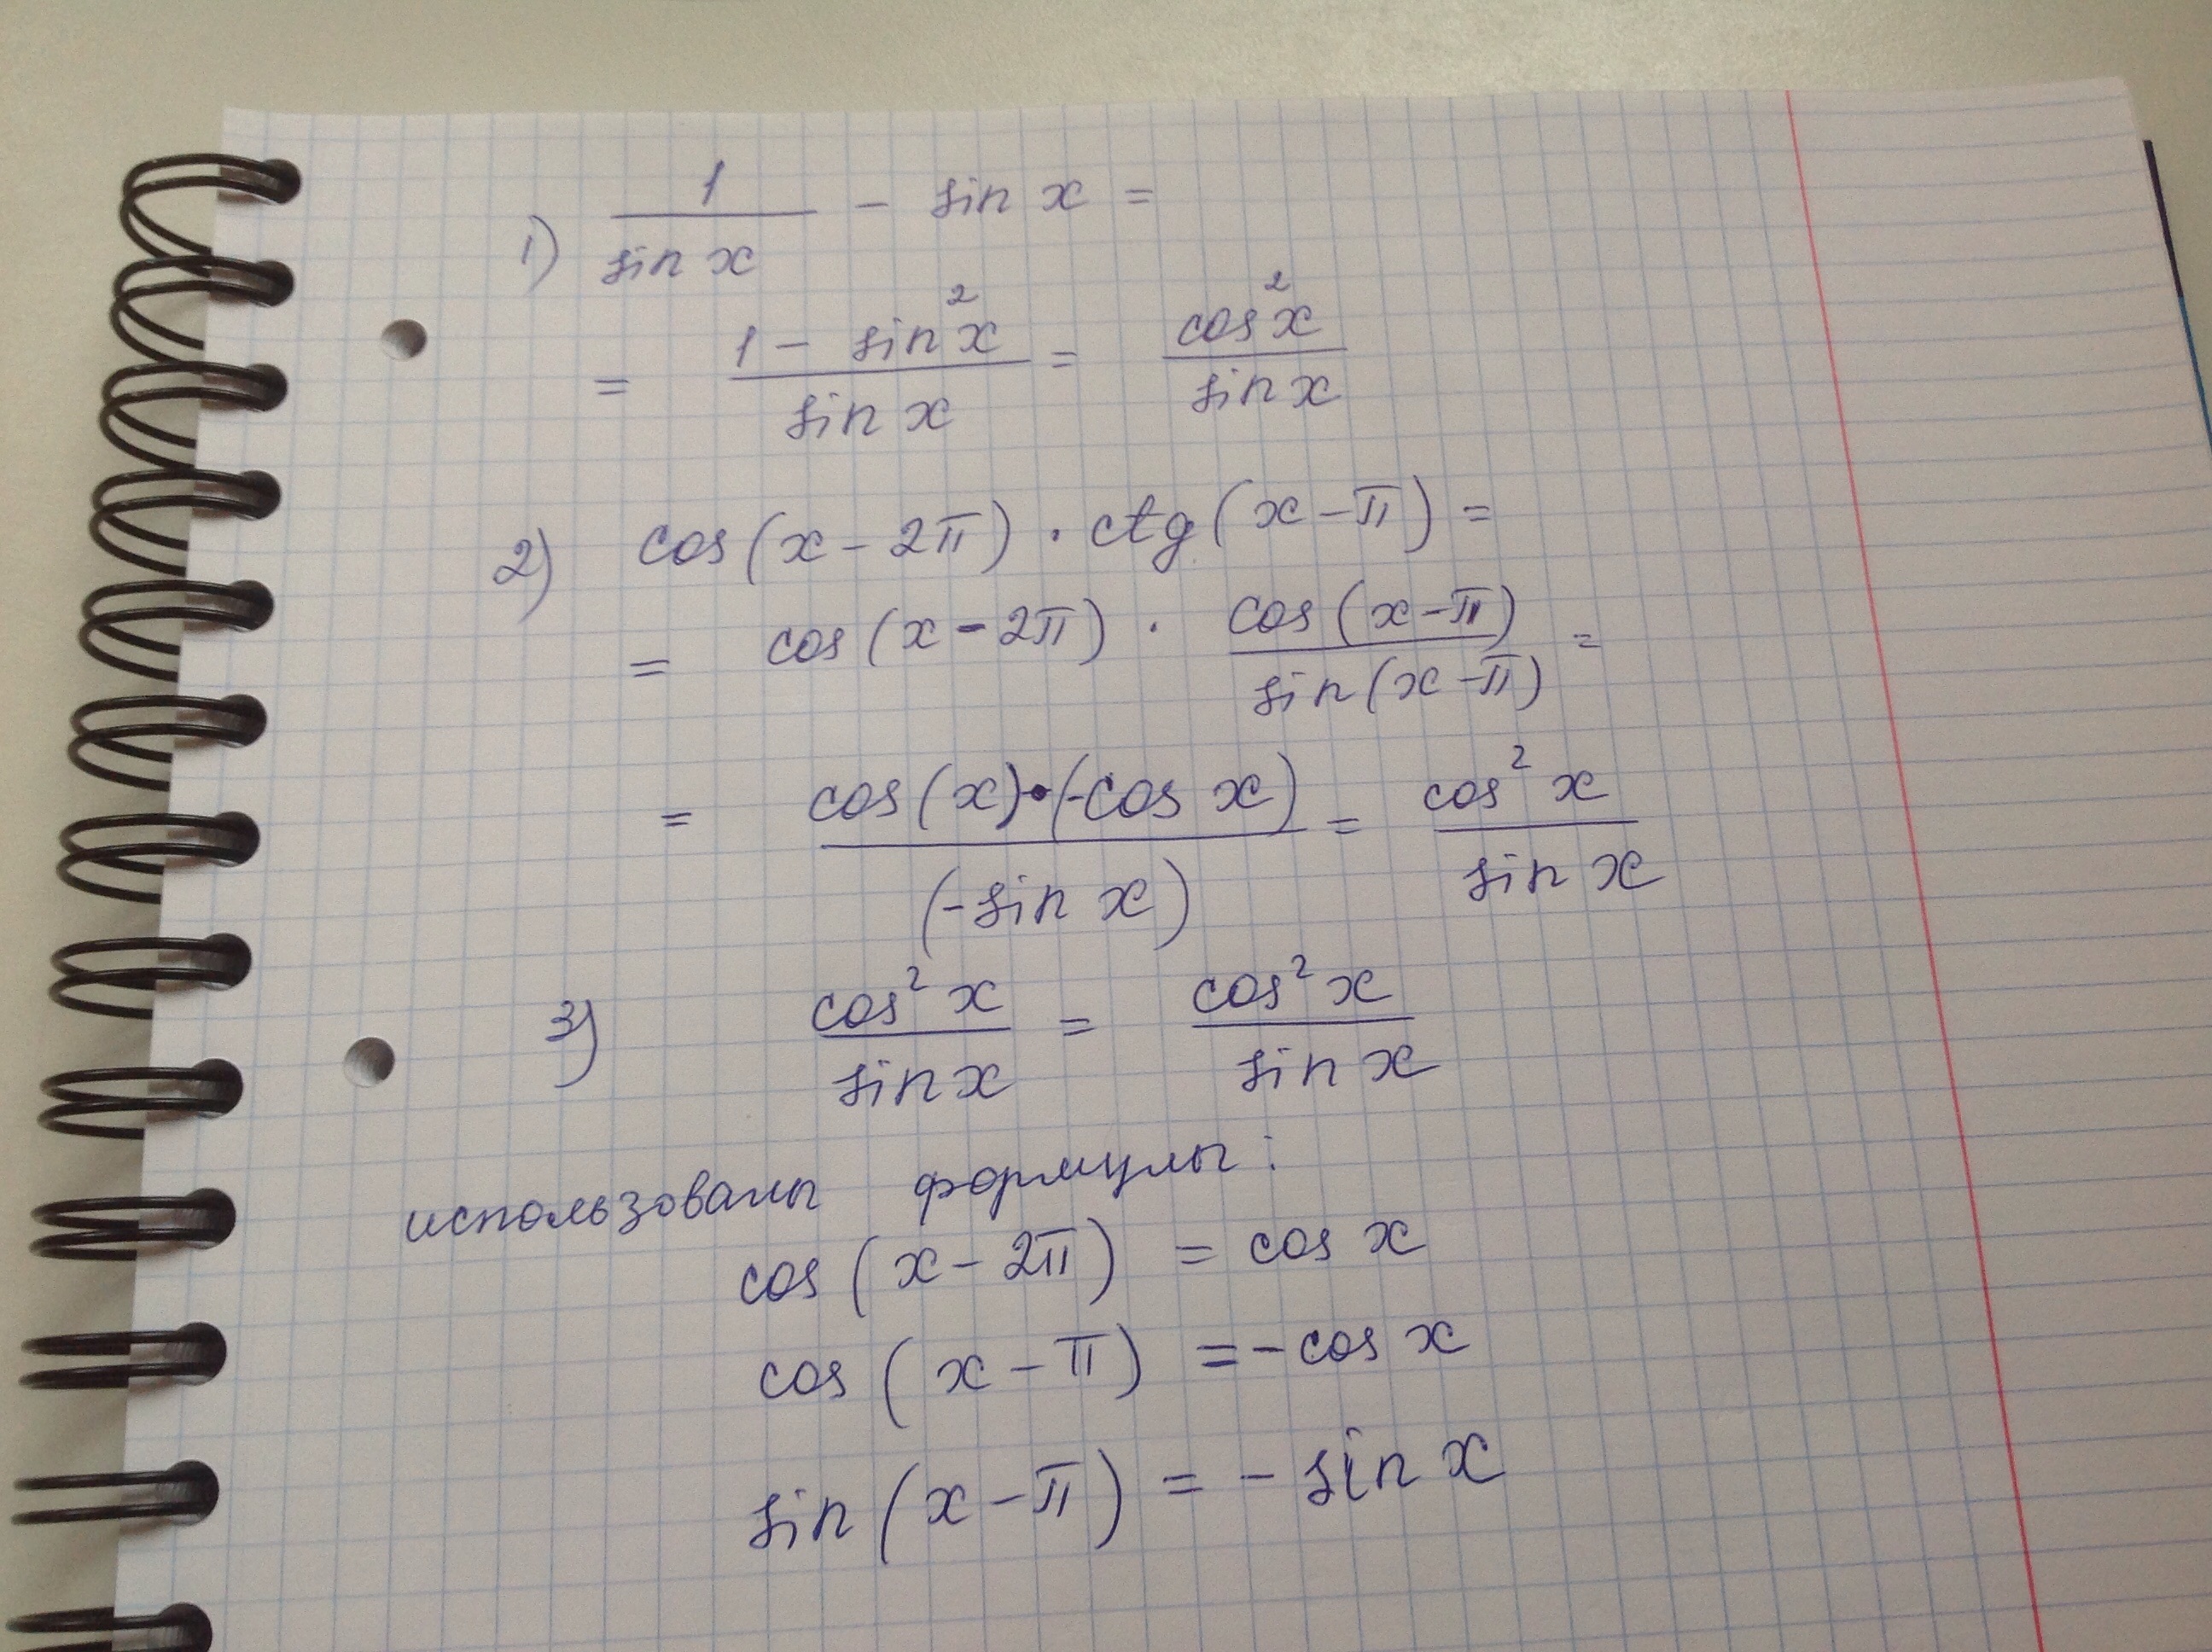 1) 1/sin x - sin x =
= (1 - sin²x)/sin x = cos²x/sin x
2) cos(x - 2π) · ctg(x - π) =
= cos(x - 2π) · cos(x - π)/sin(x - π) =
= cos(x)·(-cos x)/(-sin x) = cos² x/sin x
3) cos² x/sin x = cos² x/sin x
использованы формулы:
cos(x - 2π) = cos x
cos(x - π) = -cos x
sin(x - π) = - sin x